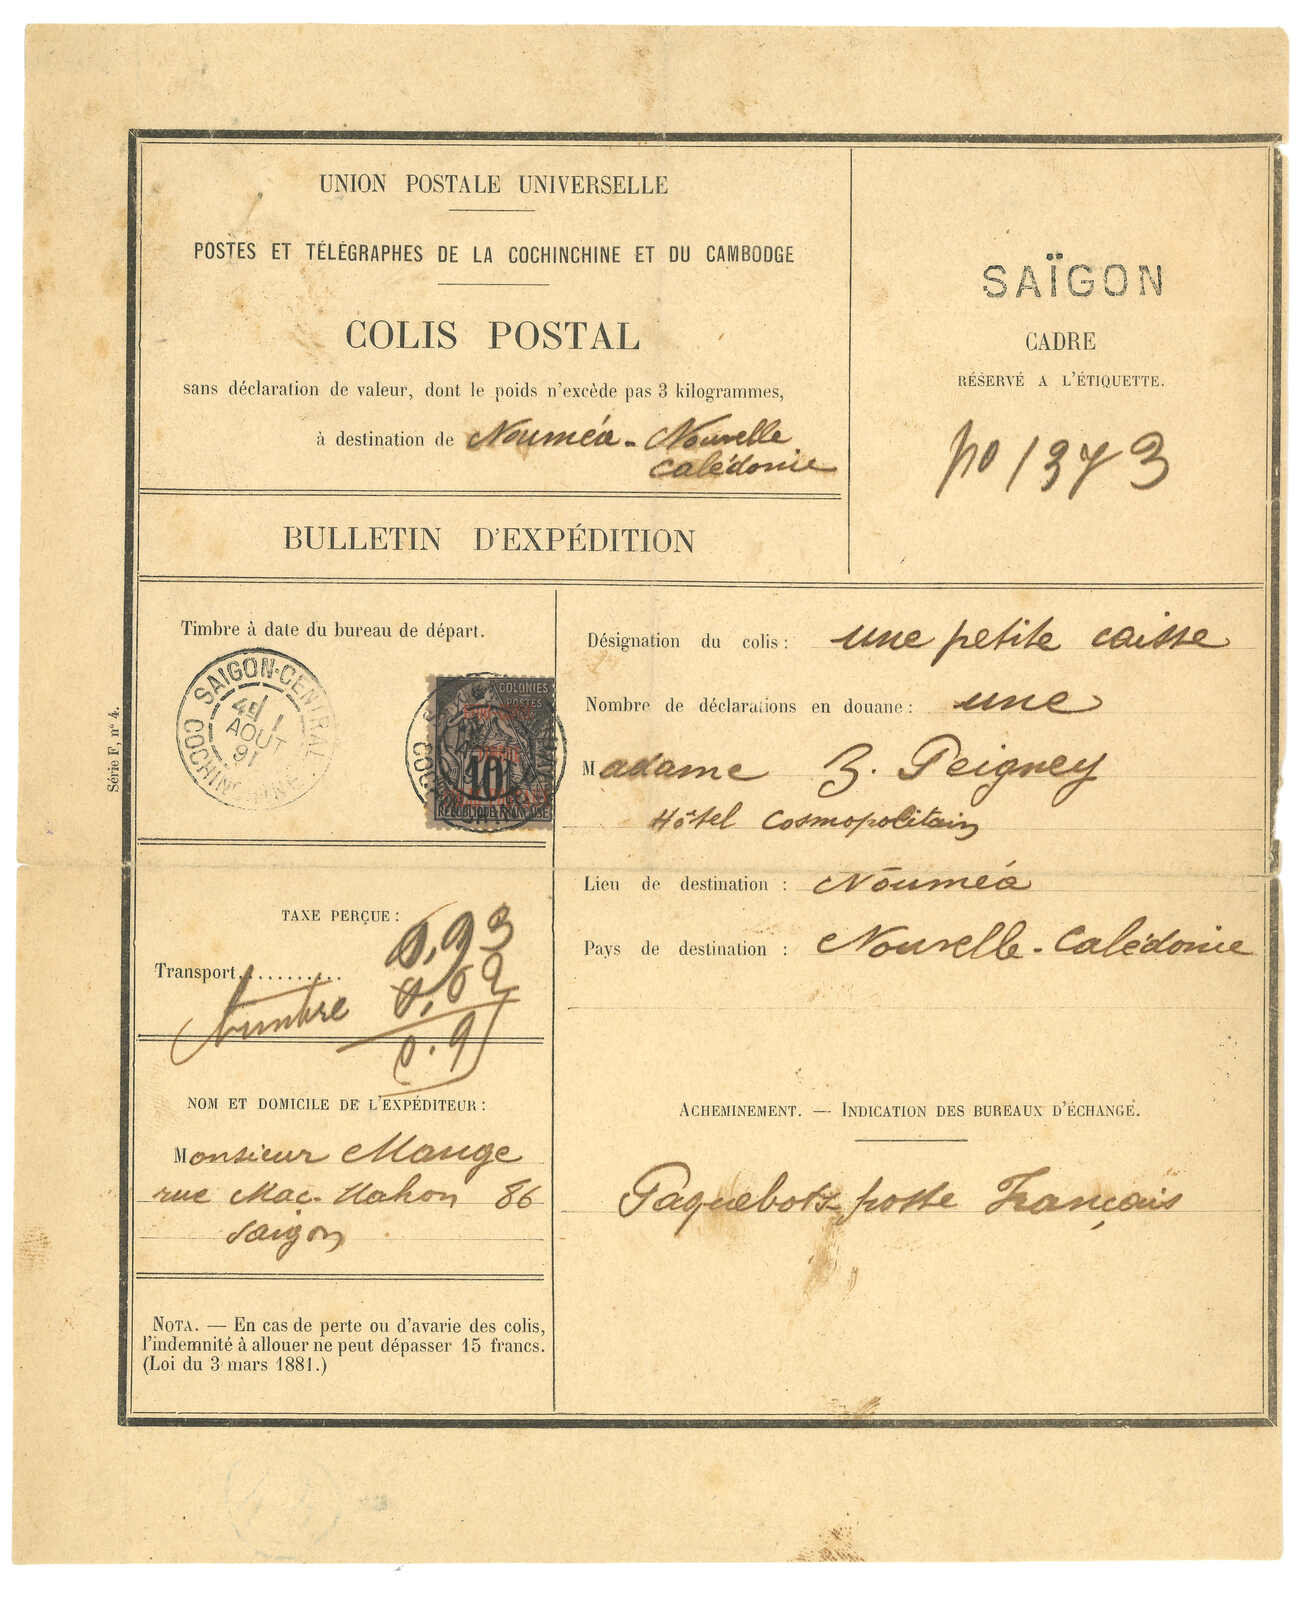 UNION POSTALE UNIVERSELLE
POSTES ET TÉLÉGRAPHES DE LA COCHINCHINE ET DU CAMBODGE
COLIS POSTAL
sans déclaration de valeur, dont le poids n'excède pas 3 kilogrammes,
à destination de Nouméa - Nouvelle
Calédonie
SAÏGON
CADRE
RÉSERVÉ A L'ÉTIQUETTE.
No 1373
BULLETIN D'EXPÉDITION
Timbre à date du bureau de départ.
SAIGON-CENTRAL
AOUT
91
COCHINCHINE
COLONIES
POSTES
10
RÉPUBLIQUE FRANÇAISE
Série F, n° 4.
Désignation du colis : une petite caisse
Nombre de déclarations en douane : une
Madame 3. Peigney
Hôtel Cosmopolitain
Lieu de destination : Nouméa
Pays de destination : Nouvelle-Calédonie
TAXE PERÇUE :
Transport.......... 0,93
0,02
NOM ET DOMICILE DE L'EXPÉDITEUR :
Monsieur Mauge
rue Mac-Mahon 86
Saigon
ACHEMINEMENT. — INDICATION DES BUREAUX D'ÉCHANGE.
Paquebots-poste Français
NOTA. — En cas de perte ou d'avarie des colis,
l'indemnité à allouer ne peut dépasser 15 francs.
(Loi du 3 mars 1881.)